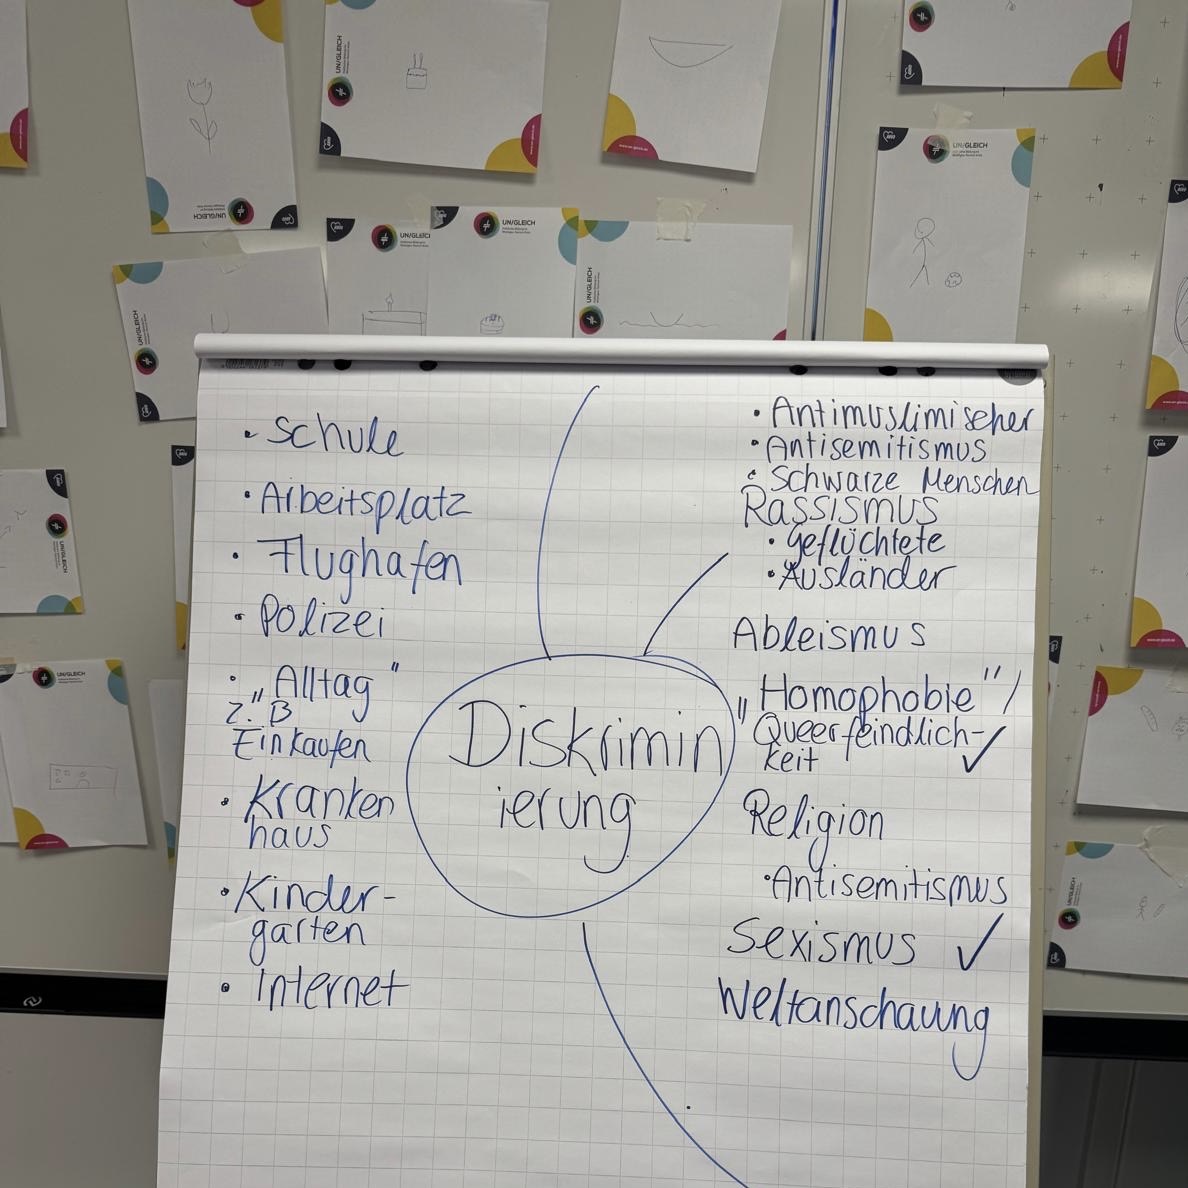 UN/GLEICH
UN/GLEICH
UN/GLEICH
UN/GLEICH
UN/GLEICH
UN/GLEICH
UN/GLEICH
UN/GLEICH
UN/GLEICH
UN/GLEICH
• Schule
• Arbeitsplatz
• Flughafen
• Polizei
• „Alltag"
z. B
Einkaufen
• Kranken
haus
• Kinder-
garten
• Internet
Diskrimin
ierung
• Antimuslimischer
• Antisemitismus
• Schwarze Menschen
Rassismus
• Geflüchtete
• Ausländer
Ableismus
„Homophobie" /
Queerfeindlich-
keit ✓
Religion
• Antisemitismus
Sexismus ✓
Weltanschauung